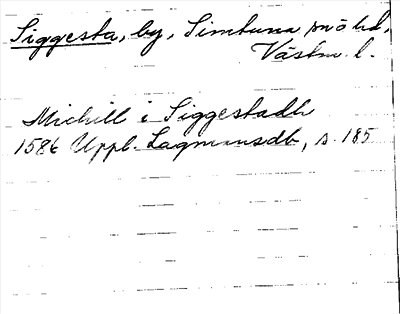 Siggesta, by, Simtuna sn o hd,
Västm. l.
Michill i Siggestadh
1586 Uppl. Lagmansdb, s. 185